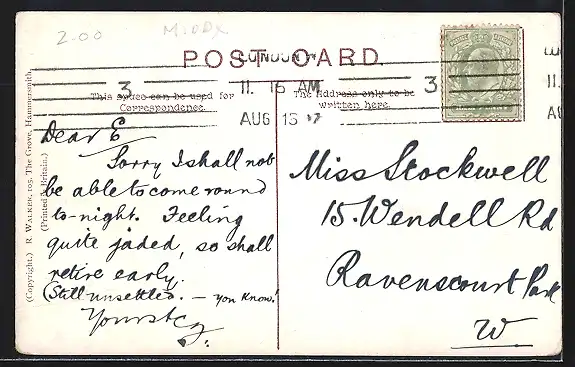 2.00 MIDDX
POST CARD.
LONDON W
3
11. 15 AM
AUG 13
3
This space can be used for
Correspondence.
The Address only to be
written here.
(Copyright.) R. WALKER, 105, The Grove, Hammersmith.
(Printed in Britain.)
Dear E
Sorry I shall not
be able to come round
to-night. Feeling
quite jaded, so shall
retire early.
(Still unsettled. — you know!
Yours
Miss Stockwell
15. Wendell Rd
Ravenscourt Park
W
11.